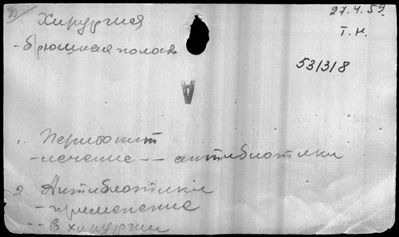 2) Хирургия
27.4.59.
- брюшная полость
Т. Н.
531318
А
1. Перитонит
- лечение -- антибиотики
2. Антибиотики
- применение
-- в хирургии